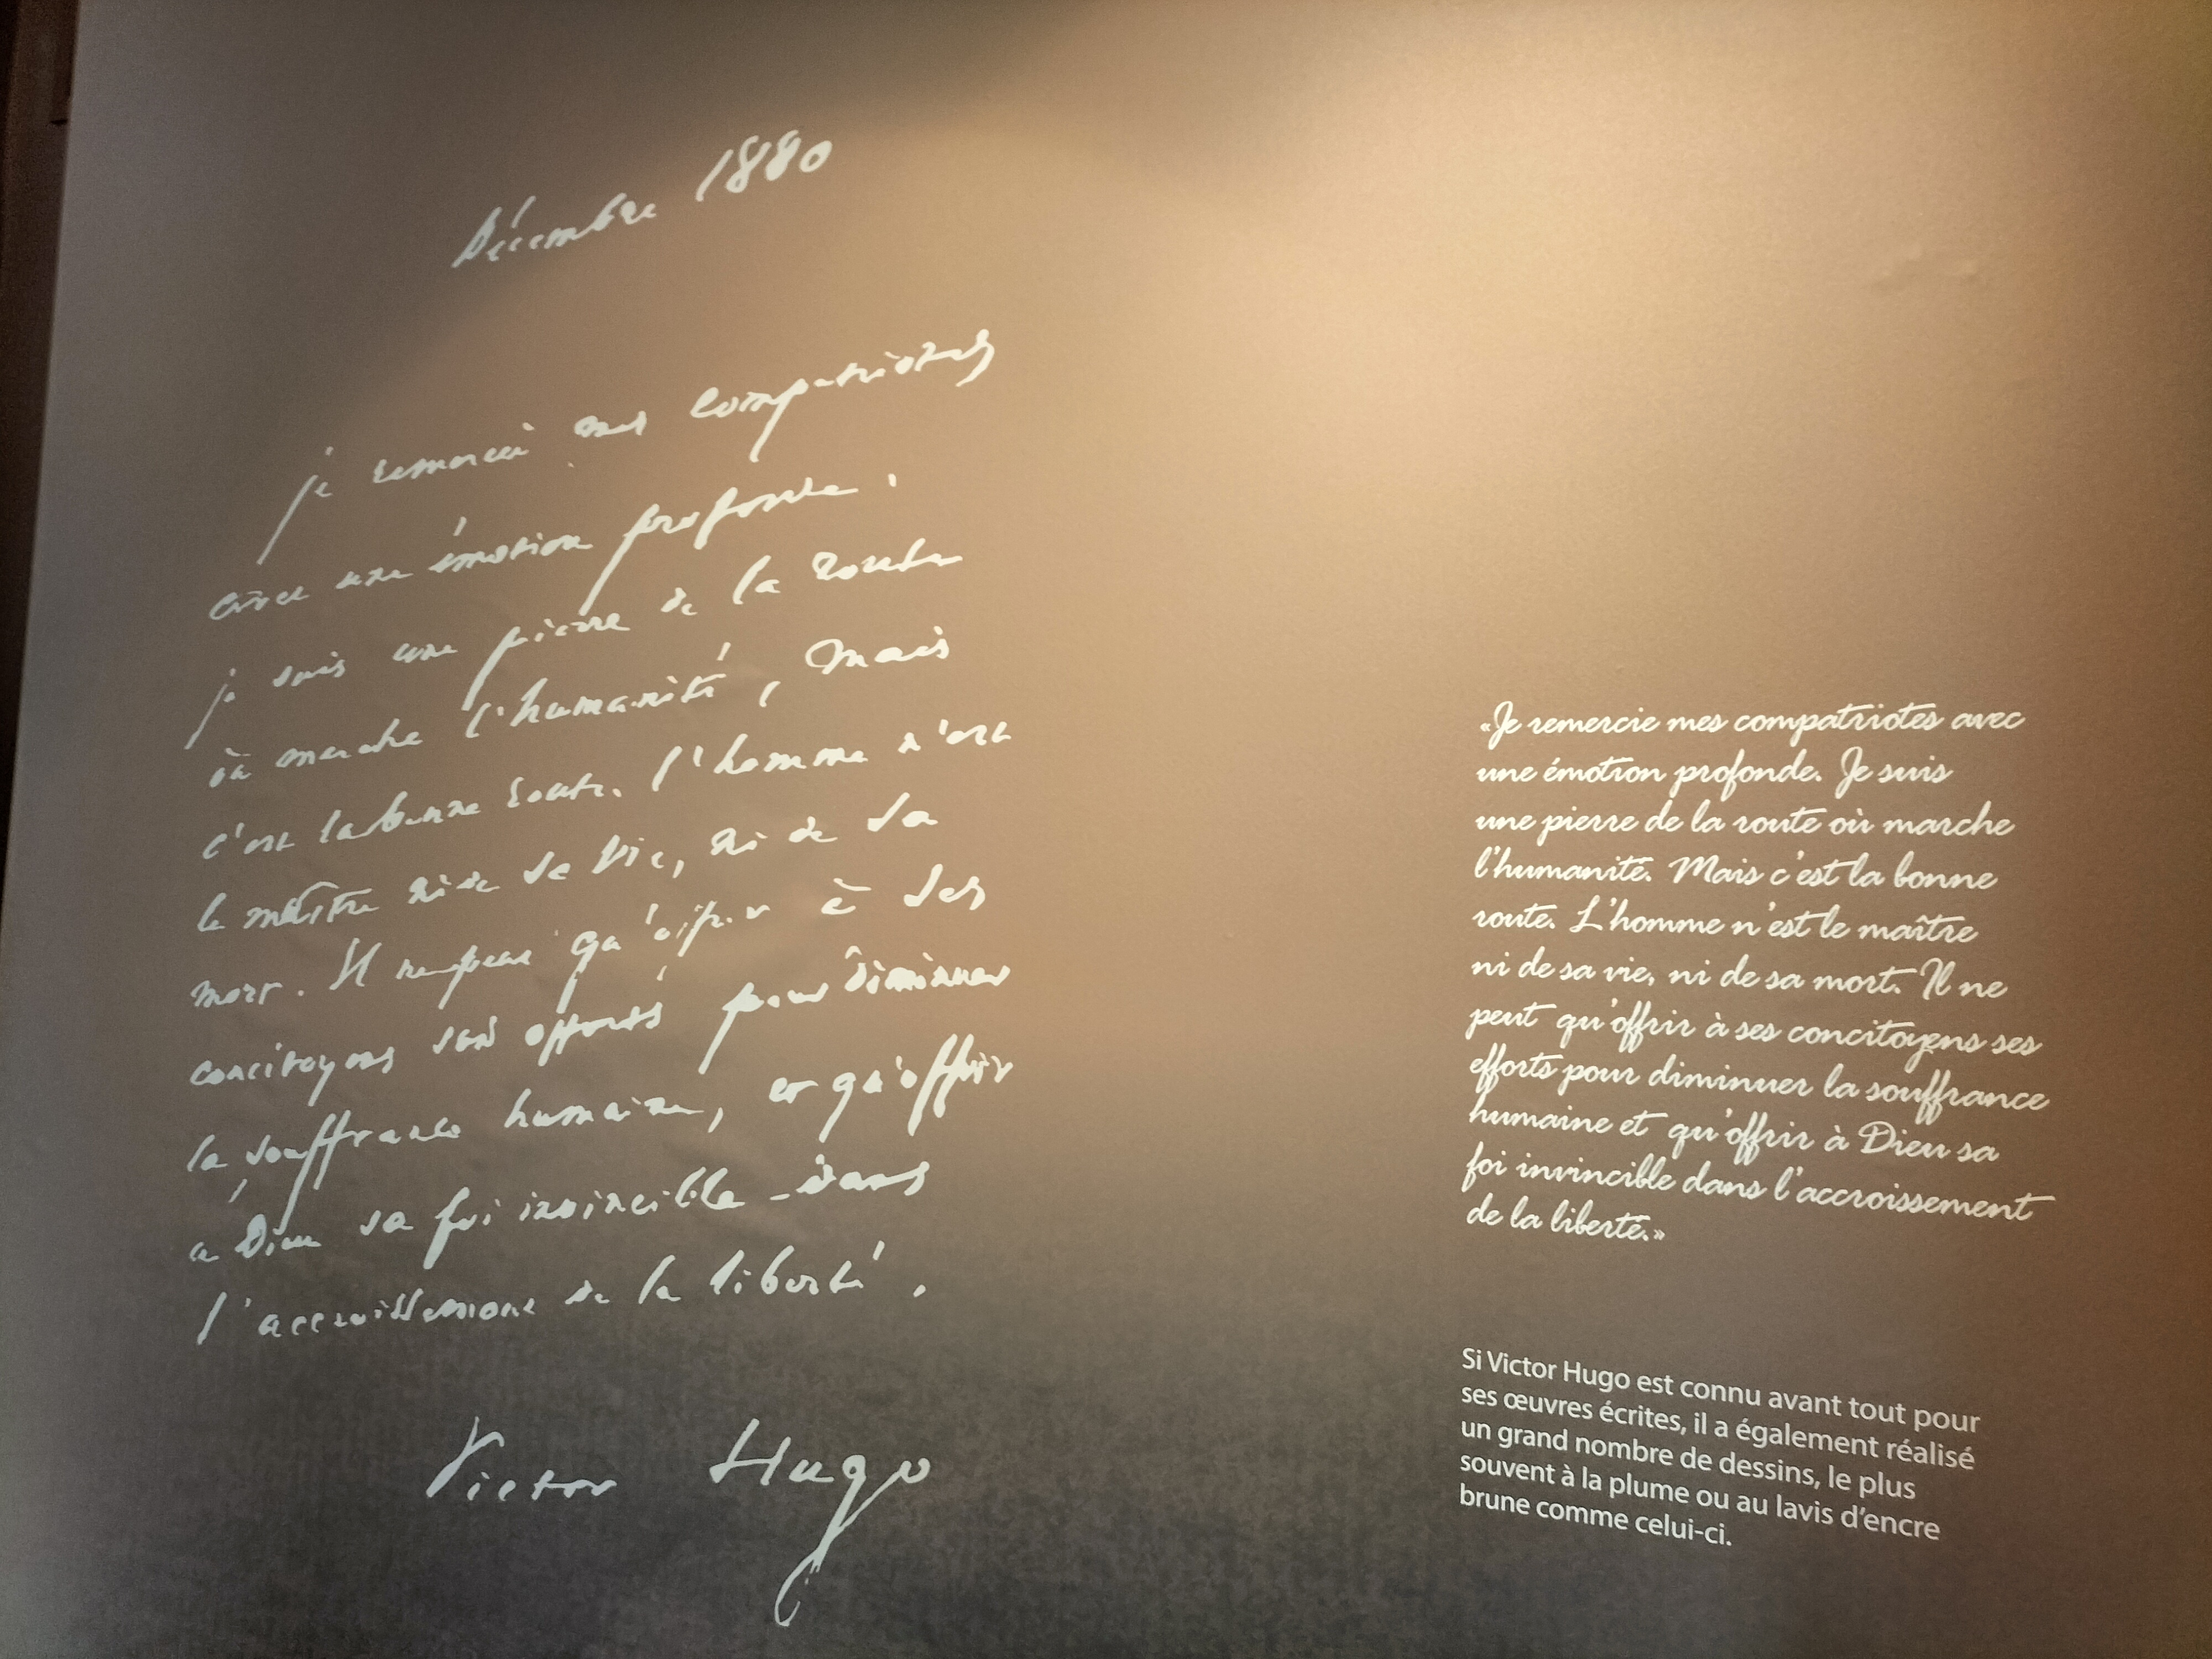 Décembre 1880
je remercie mes compatriotes
avec une émotion profonde.
je suis une pierre de la route
où marche l'humanité, mais
c'est la bonne route. l'homme n'est
le maître ni de sa vie, ni de sa
mort. Il ne peut qu'offrir à ses
concitoyens ses efforts pour diminuer
la souffrance humaine, et qu'offrir
à Dieu sa foi invincible dans
l'accroissement de la liberté.
Victor Hugo
«Je remercie mes compatriotes avec
une émotion profonde. Je suis
une pierre de la route où marche
l'humanité. Mais c'est la bonne
route. L'homme n'est le maître
ni de sa vie, ni de sa mort. Il ne
peut qu'offrir à ses concitoyens ses
efforts pour diminuer la souffrance
humaine et qu'offrir à Dieu sa
foi invincible dans l'accroissement
de la liberté.»
Si Victor Hugo est connu avant tout pour
ses œuvres écrites, il a également réalisé
un grand nombre de dessins, le plus
souvent à la plume ou au lavis d'encre
brune comme celui-ci.